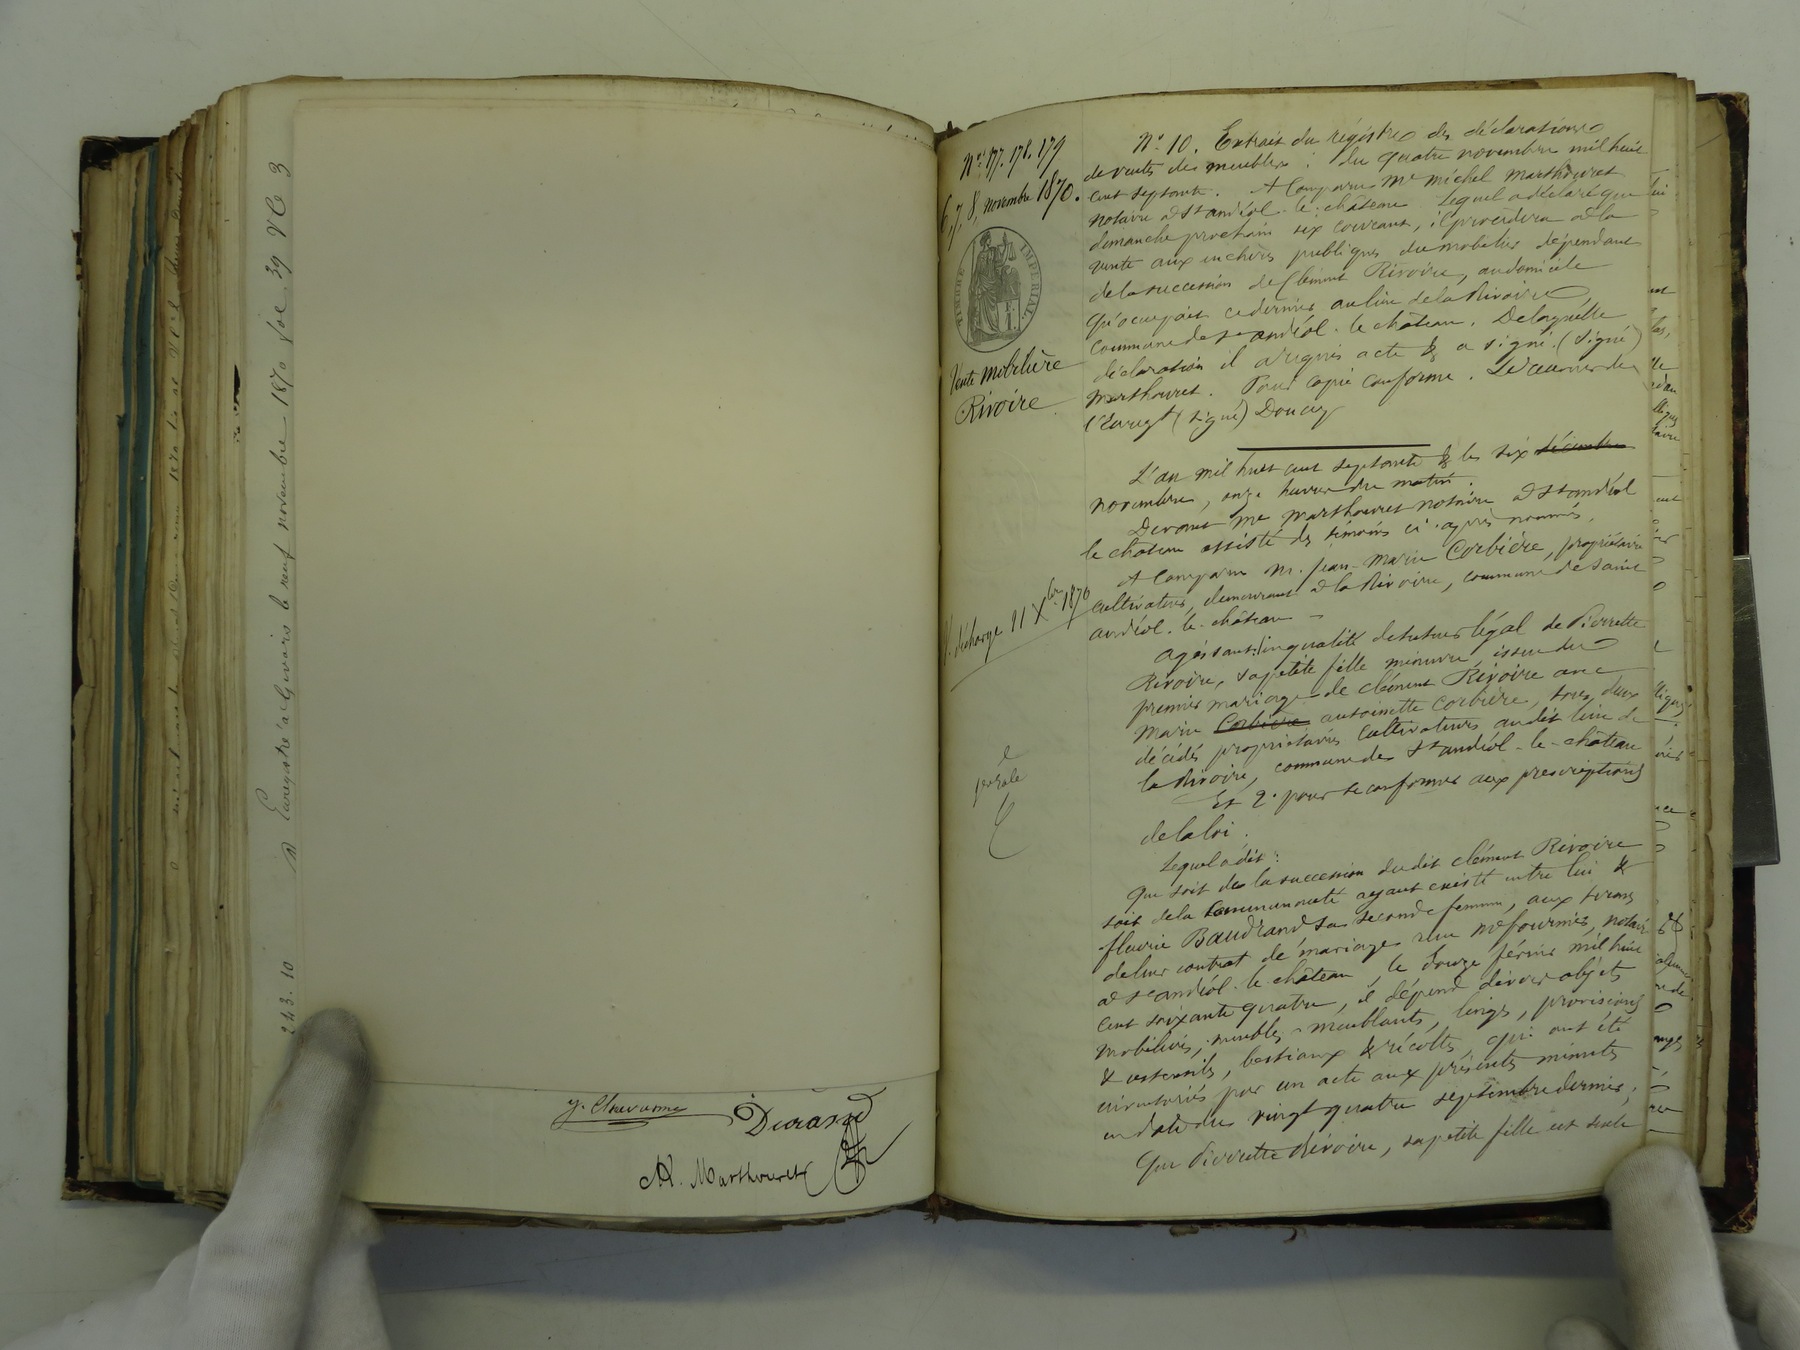 Enregistré à Givors le neuf novembre 1870 fol. 39 Vº C 3
243.10
J. Chavanne
Durand
M. Marthouret
Nos 177. 178. 179
6, 7, 8, novembre 1870.
TIMBRE IMPÉRIAL
1 F.
Vente mobilière
Rivoire
décharge 11 Xbre 1870
N° 10. Extrait du régistre des déclarations
de vente des meubles : du quatre novembre mil huit
cent septante. A Comparu Me Michel Marthouret
notaire à St andéol-le-château lequel a déclaré que
dimanche prochain six courant, il procédera à la
vente aux enchères publiques du mobilier dépendant
de la succession de Clément Rivoire, au domicile
qu'occupait ce dernier au lieu de la Rivoire
commune de St andéol-le-château. De laquelle
déclaration il a requis acte & a signé. (Signé)
Marthouret. Pour copie conforme. Le receveur de
l'Enregt (signé) Doucey
L'an mil huit cent septante & le six décembre
novembre, onze heures du matin.
Devant Me Marthouret notaire à St andéol
le château assisté des témoins ci-après nommés,
A Comparu M. jean-Marie Corbière, propriétaire
cultivateur, demeurant à la Rivoire, commune de Saint
andéol-le-château
agissant: en qualité de tuteur légal de Pierrette
Rivoire, sa petite fille mineure, issue du
premier mariage de clément Rivoire avec
Marie Corbière antoinette Corbière, tous deux
décédés propriétaires cultivateurs au dit lieu de
la Rivoire, commune de St andéol-le-château
Et 2° pour se conformer aux prescriptions
de la loi.
Lequel a dit :
Que soit de la succession du dit clément Rivoire
soit de la communauté ayant existé entre lui &
fleurie Baudrand sa seconde femme, aux termes
de leur contrat de mariage reçu Me fournier, notaire
à St andéol-le-château, le douze février mil huit
cent soixante quatre, il dépend divers objets
mobiliers, meubles-meublants, linges, provisions
& ustensils, bestiaux & récoltes, qui ont été
inventoriés par un acte aux présentes minutes
en date du vingt quatre septembre dernier,
Que Pierrette Rivoire, sa petite fille est seule